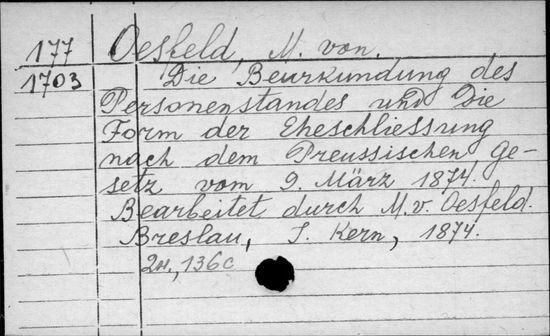 177 Oesfeld, M. von.
1703 Die Beurkundung des
Personenstandes und die
Form der Eheschliessung
nach dem Preussischen Ge-
setz vom 9. März 1874.
Bearbeitet durch M. v. Oesfeld.
Breslau, J. Kern, 1874.
136 C